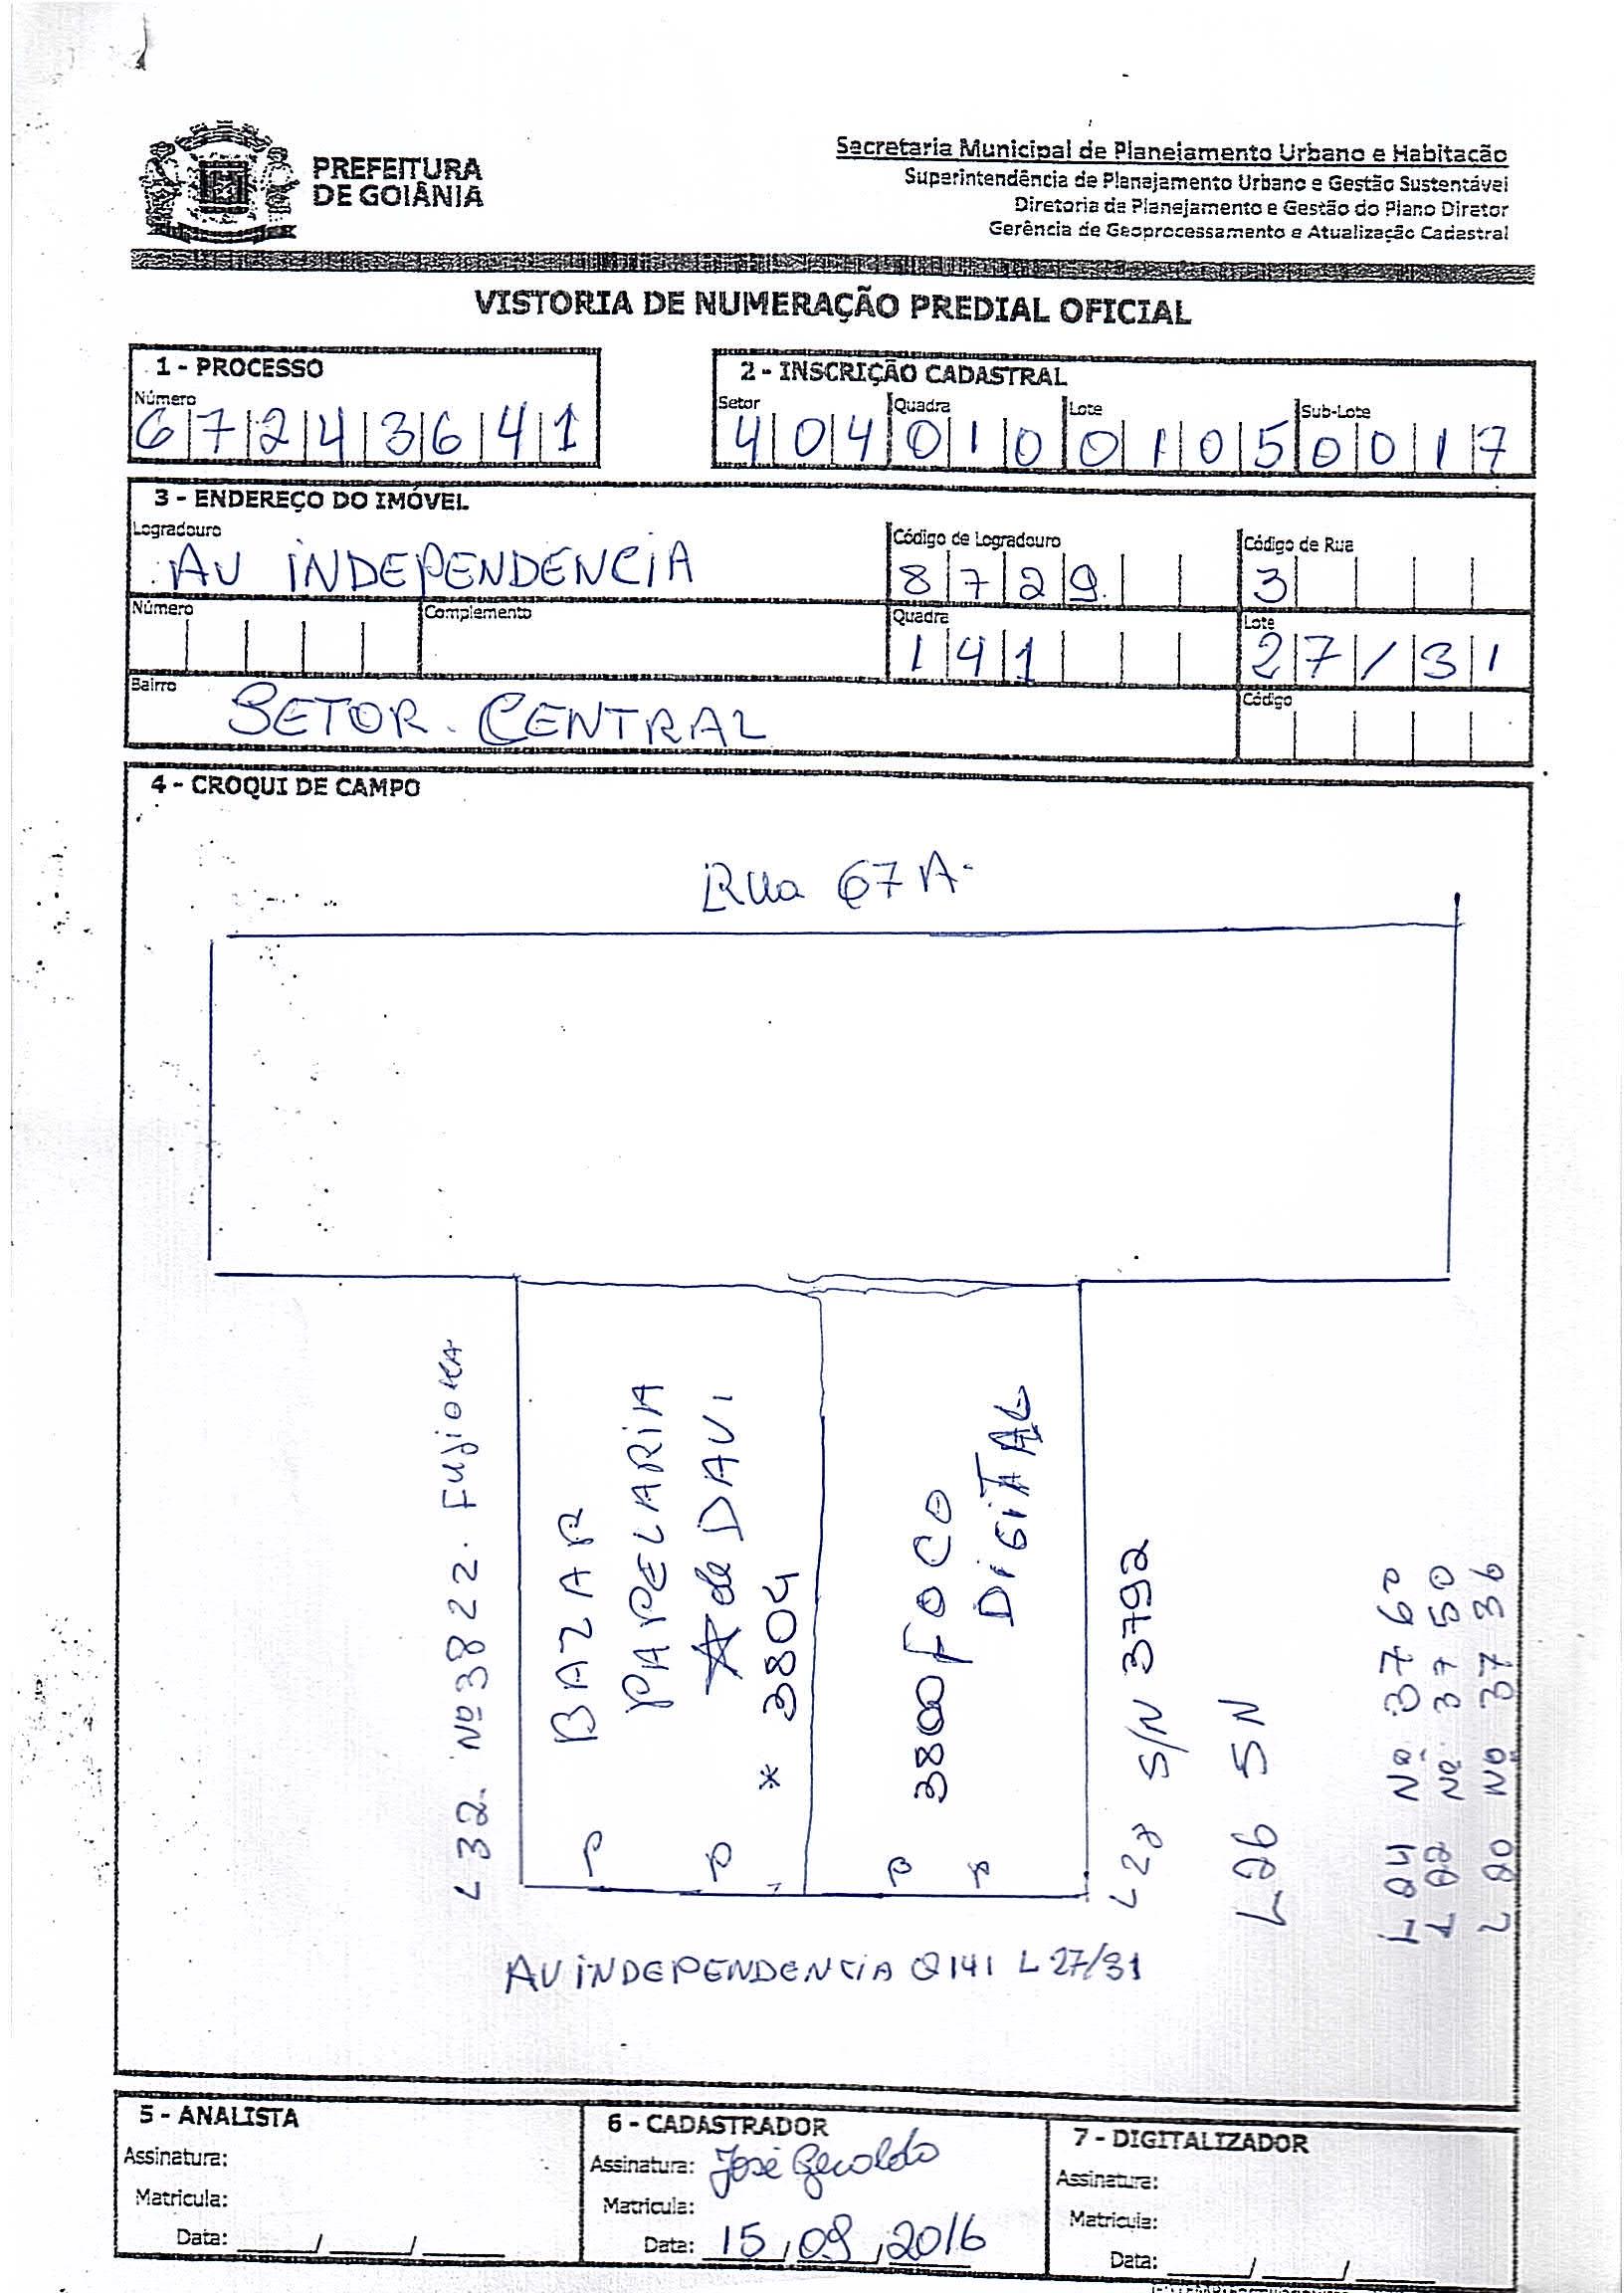 PREFEITURA
DE GOIÂNIA
Secretaria Municipal de Planejamento Urbano e Habitação
Superintendência de Planejamento Urbano e Gestão Sustentável
Diretoria de Planejamento e Gestão do Plano Diretor
Gerência de Geoprocessamento e Atualização Cadastral
VISTORIA DE NUMERAÇÃO PREDIAL OFICIAL
1 - PROCESSO
Número
67243641
2 - INSCRIÇÃO CADASTRAL
Setor Quadra Lote Sub-Lote
404 010 0105 0017
3 - ENDEREÇO DO IMÓVEL
Logradouro
AV INDEPENDENCIA
Código de Logradouro
8729
Código de Rua
3
Número
Complemento
Quadra
141
Lote
27/31
Bairro
SETOR CENTRAL
Código
4 - CROQUI DE CAMPO
Rua 67 A
L 32. Nº 3822. FUJIOKA
BAZAR
PAPELARIA
de DAVI
* 3804
P P
3800 FOCO
DIGITAL
P P
L 27 S/N 3792
L 26 SN
L 24 Nº 3760
L 22 Nº 3750
L 20 Nº 3736
AV INDEPENDENCIA Q 141 L 27/31
5 - ANALISTA
Assinatura:
Matricula:
Data: ____/____/____
6 - CADASTRADOR
Assinatura: José Geraldo
Matricula:
Data: 15/09/2016
7 - DIGITALIZADOR
Assinatura:
Matricula:
Data: ____/____/____